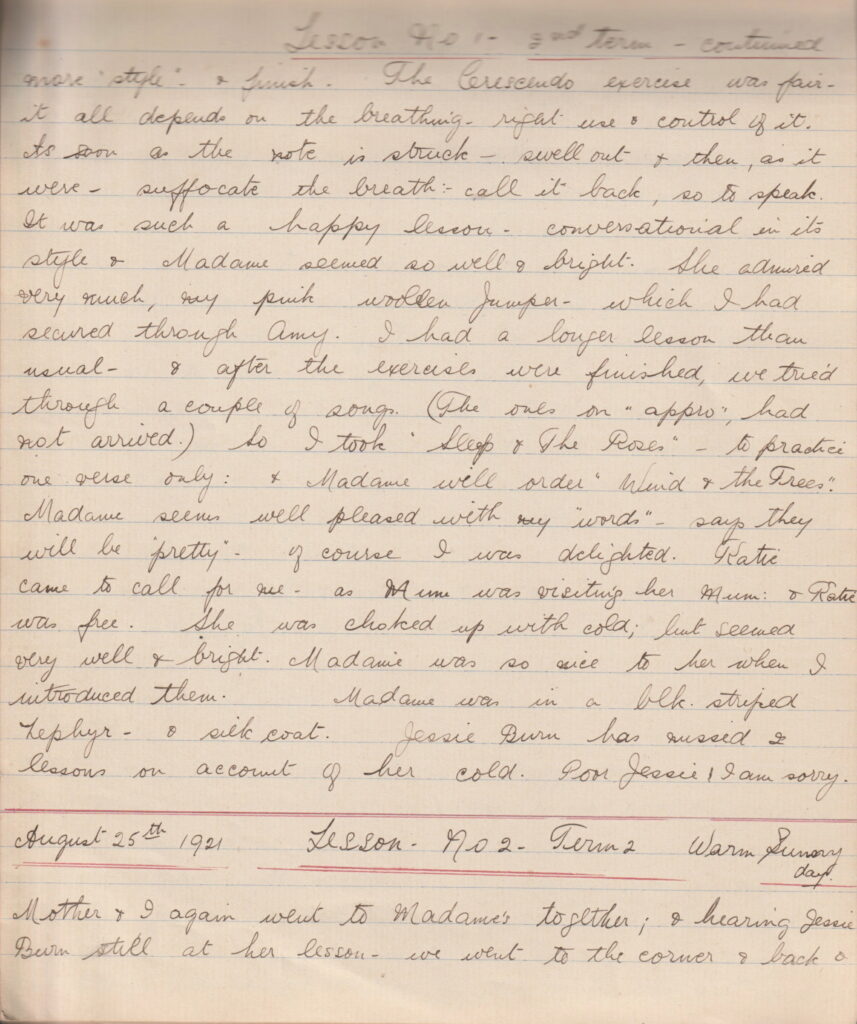 Lesson No 1 - 2nd term - continued
more "style" - & finish. The Crescendo exercise was fair -
it all depends on the breathing - right use & control of it.
As soon as the note is struck - swell out & then, as it
were - suffocate the breath:- call it back, so to speak.
It was such a happy lesson - conversational in its
style & Madame seemed so well & bright. She admired
very much, my pink woollen Jumper - which I had
secured through Amy. I had a longer lesson than
usual - & after the exercises were finished, we tried
through a couple of songs. (The ones on "appro", had
not arrived.) So I took "Sleep & The Roses" - to practice
one verse only: & Madame will order "Wind & the Trees".
Madame seems well pleased with my "words" - says they
will be "pretty" - of course I was delighted. Katie
came to call for me - as Mum was visiting her Mum: & Katie
was free. She was choked up with cold; but seemed
very well & bright. Madame was so nice to her when I
introduced them. Madame was in a blk. striped
Zephyr - & silk coat. Jessie Burn has missed 2
lessons on account of her cold. Poor Jessie! I am sorry.
August 25th 1921 Lesson - No 2 - Term 2 Warm Sunny
day.
Mother & I again went to Madame's together; & hearing Jessie
Burn still at her lesson - we went to the corner & back &